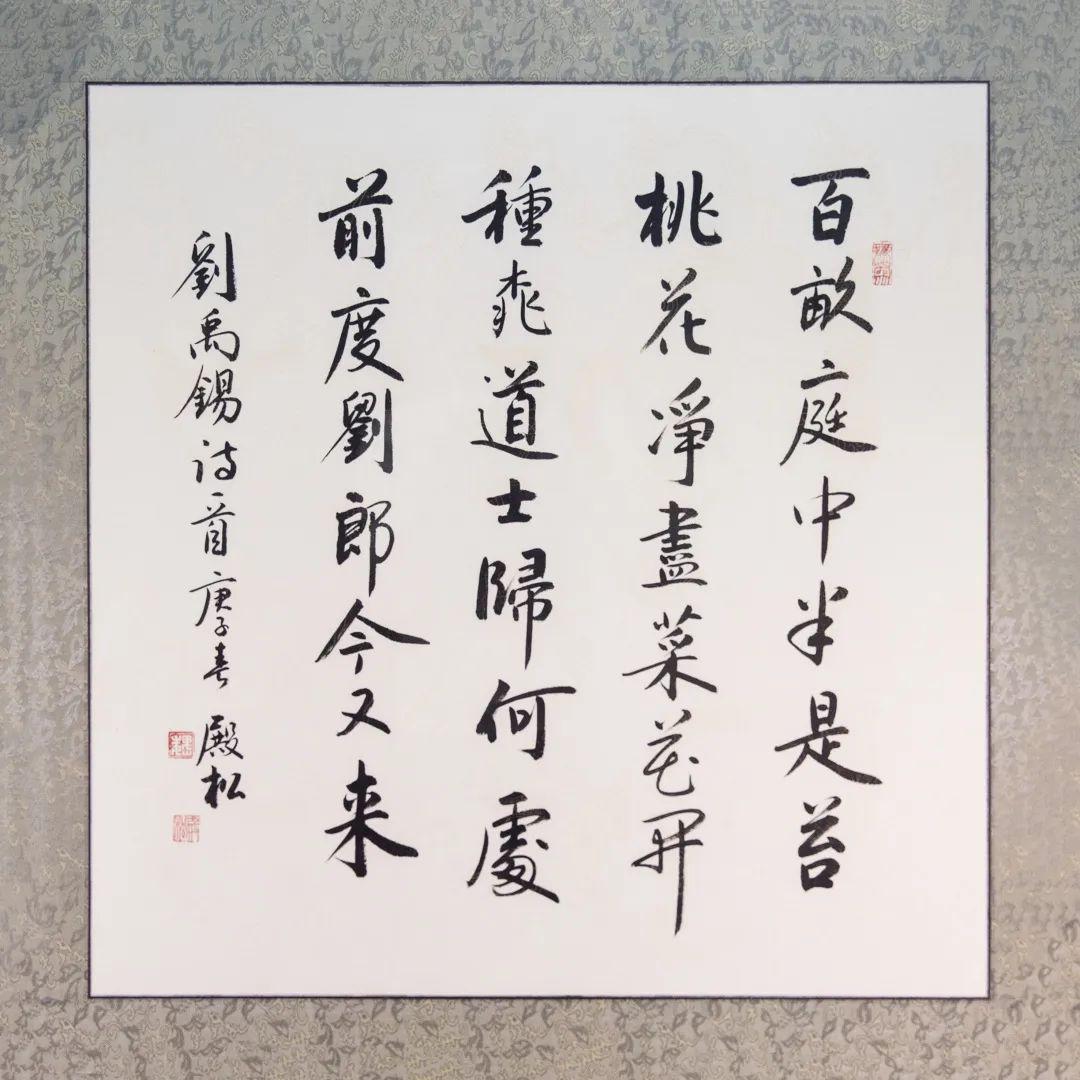 百畝庭中半是苔
桃花淨盡菜花開
種桃道士歸何處
前度劉郎今又来
劉禹錫诗一首 庚子春 殿松